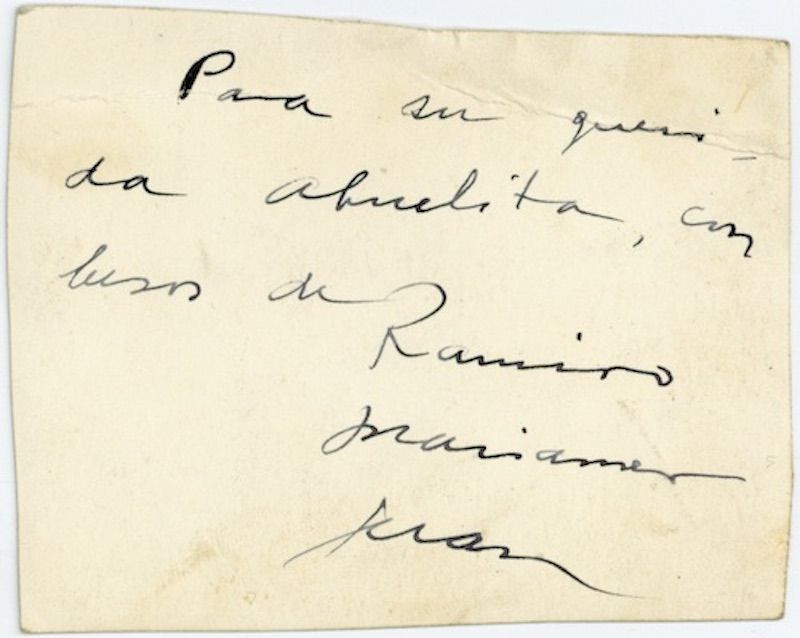 Para su queri-
da abuelita, con
besos de
Ramiro
Mariamer
Juan